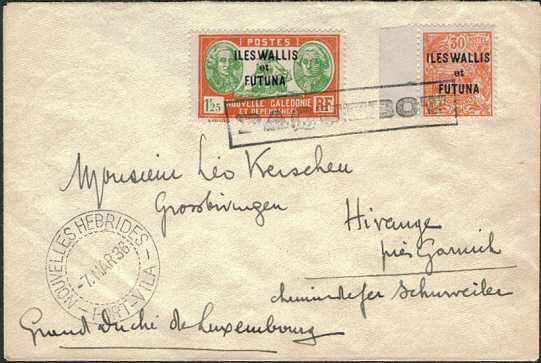 POSTES
ILES WALLIS
et
FUTUNA
1F25
NOUVELLE CALEDONIE
ET DEPENDANCES
RF
30
ILES WALLIS
et
FUTUNA
Monsieur Léo Kerschen
Grossbivingen
Hivange
près Garnich
chemin de fer Schuweiler
Grand Duché de Luxembourg
NOUVELLES HEBRIDES
-7.MAR 36
PORT-VILA